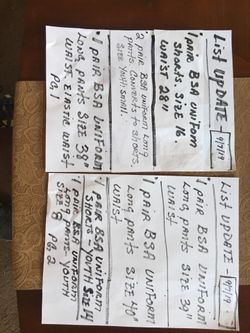 List UPDATE - 9/7/19
1 PAIR BSA UNIFORM
SHORTS. SIZE 16.
WAIST 28"
2 PAIR BSA UNIFORM LONG
PANTS. CONVERTS TO SHORTS.
SIZE YOUTH SMALL.
1 PAIR BSA UNIFORM
LONG PANTS SIZE 38"
WAIST. ELASTIC WAIST
PG. 1
List UPDATE - 9/7/19
1 PAIR BSA UNIFORM
LONG PANTS SIZE 34"
WAIST
1 PAIR BSA UNIFORM
LONG PANTS SIZE 40"
WAIST
1 PAIR BSA UNIFORM
SHORTS - YOUTH SIZE 14
1 PAIR BSA UNIFORM
LONG PANTS YOUTH
SIZE 8
PG. 2